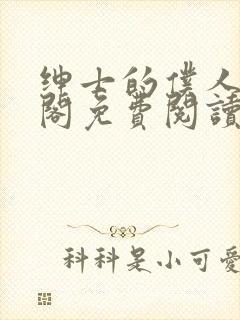 绅士的僕人
閣免費閱讀
科科是小可愛